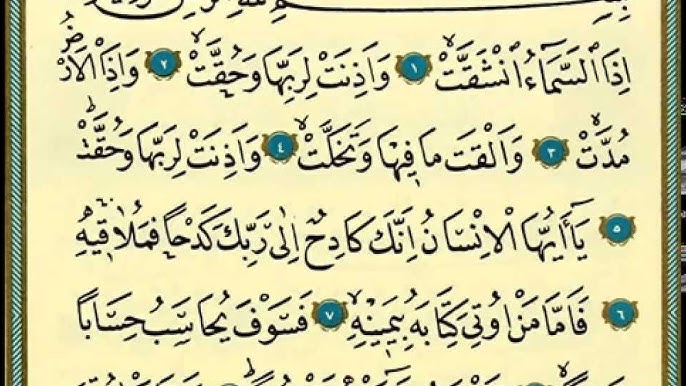 اِذَا السَّمَٓاءُ انْشَقَّتْۙ ﴿١﴾ وَاَذِنَتْ لِرَبِّهَا وَحُقَّتْۙ ﴿٢﴾ وَاِذَا الْاَرْضُ
مُدَّتْۙ ﴿٣﴾ وَاَلْقَتْ مَا ف۪يهَا وَتَخَلَّتْۙ ﴿٤﴾ وَاَذِنَتْ لِرَبِّهَا وَحُقَّتْۜ
﴿٥﴾ يَٓا اَيُّهَا الْاِنْسَانُ اِنَّكَ كَادِحٌ اِلٰى رَبِّكَ كَدْحًا فَمُلَاق۪يهِۚ
﴿٦﴾ فَاَمَّا مَنْ اُو۫تِيَ كِتَابَهُ بِيَم۪ينِه۪ۙ ﴿٧﴾ فَسَوْفَ يُحَاسَبُ حِسَابًا